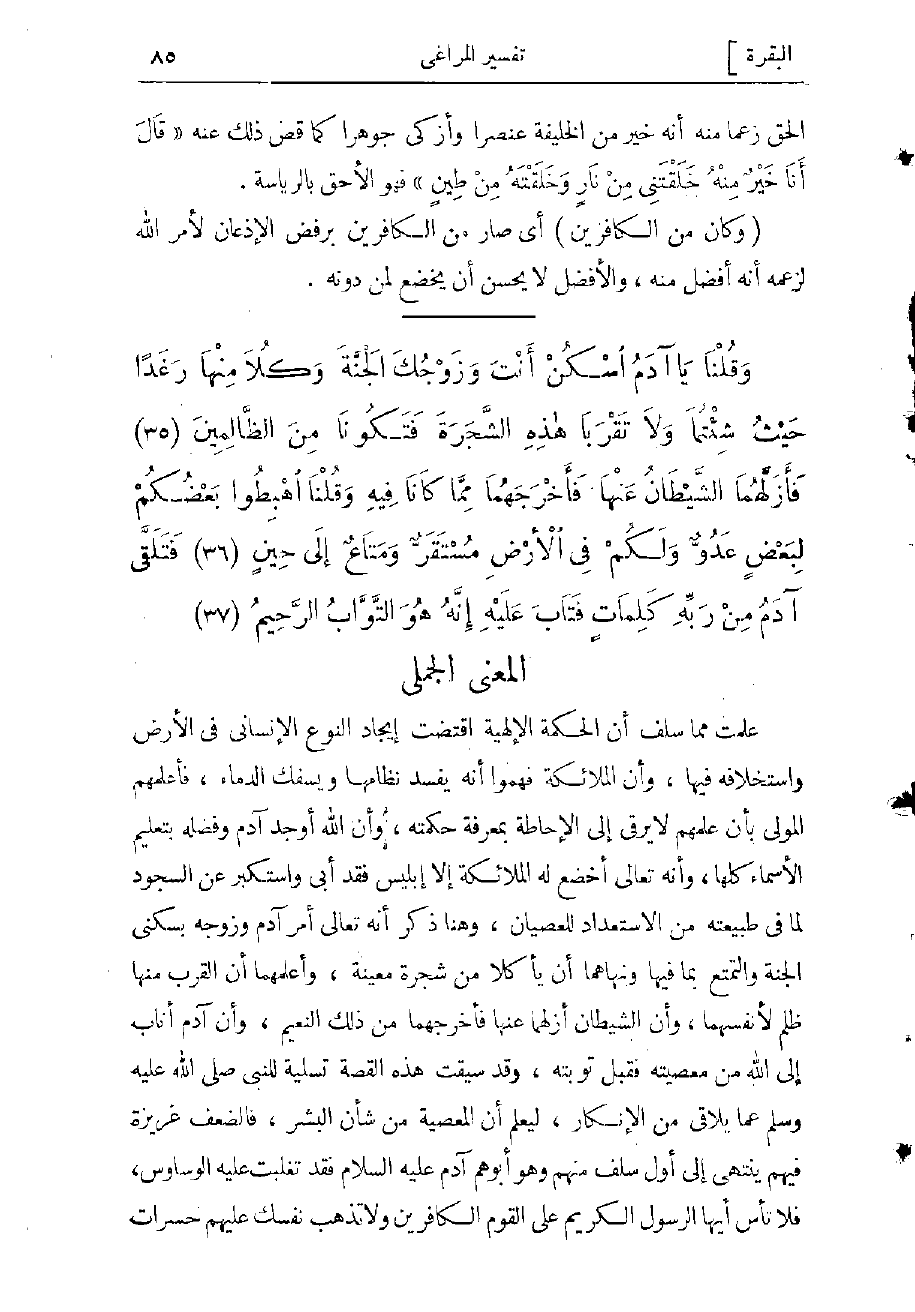 البقرة ] تفسير المراغى ٨٥
الحق زعما منه أنه خير من الخليفة عنصرا وأزكى جوهرا كما قص ذلك عنه « قَالَ
أَنَا خَيْرٌ مِنْهُ خَلَقْتَنِى مِنْ نَارٍ وَخَلَقْتَهُ مِنْ طِينٍ » فهو الأحق بالرياسة .
( وكان من الكافرين ) أى صار من الكافرين برفض الإذعان لأمر الله
لزعمه أنه أفضل منه ، والأفضل لا يحسن أن يخضع لمن دونه .
وَقُلْنَا يَا آدَمُ اسْكُنْ أَنْتَ وَزَوْجُكَ الْجَنَّةَ وَكُلَا مِنْهَا رَغَدًا
حَيْثُ شِئْتُمَا وَلَا تَقْرَبَا هٰذِهِ الشَّجَرَةَ فَتَكُونَا مِنَ الظَّالِمِينَ (٣٥)
فَأَزَلَّهُمَا الشَّيْطَانُ عَنْهَا فَأَخْرَجَهُمَا مِمَّا كَانَا فِيهِ وَقُلْنَا اهْبِطُوا بَعْضُكُمْ
لِبَعْضٍ عَدُوٌّ وَلَكُمْ فِى الْأَرْضِ مُسْتَقَرٌّ وَمَتَاعٌ إِلَى حِينٍ (٣٦) فَتَلَقَّى
آدَمُ مِنْ رَبِّهِ كَلِمَاتٍ فَتَابَ عَلَيْهِ إِنَّهُ هُوَ التَّوَّابُ الرَّحِيمُ (٣٧)
المعنى الجملى
علمت مما سلف أن الحكمة الإلهية اقتضت إيجاد النوع الإنسانى فى الأرض
واستخلافه فيها ، وأن الملائكة فهموا أنه يفسد نظامها ويسفك الدماء ، فأعلمهم
المولى بأن علمهم لا يرقى إلى الإحاطة بمعرفة حكمته ، وأن الله أوجد آدم وفضله بتعليم
الأسماء كلها ، وأنه تعالى أخضع له الملائكة إلا إبليس فقد أبى واستكبر عن السجود
لما فى طبيعته من الاستعداد للعصيان ، وهنا ذكر أنه تعالى أمر آدم وزوجه بسكنى
الجنة والتمتع بما فيها ونهاهما أن يأكلا من شجرة معينة ، وأعلمهما أن القرب منها
ظلم لأنفسهما ، وأن الشيطان أزلهما عنها فأخرجهما من ذلك النعيم ، وأن آدم أناب
إلى الله من معصيته فقبل توبته ، وقد سيقت هذه القصة تسلية للنبى صلى الله عليه
وسلم عما يلاقى من الإنكار ، ليعلم أن المعصية من شأن البشر ، فالضعف غريزة
فيهم ينتهى إلى أول سلف منهم وهو أبوهم آدم عليه السلام فقد تغلبت عليه الوساوس،
فلا تأس أيها الرسول الكريم على القوم الكافرين ولا تذهب نفسك عليهم حسرات